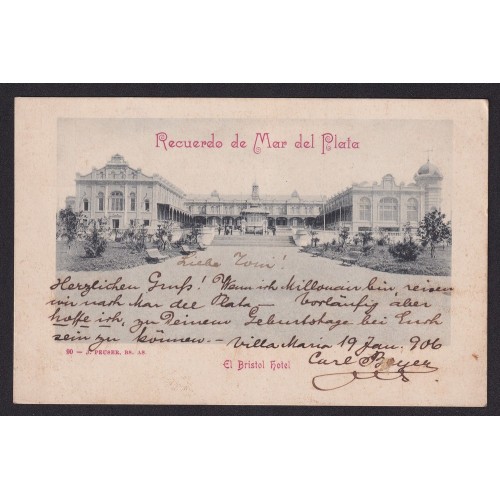 Recuerdo de Mar del Plata
Liebe Toni!
Herzlichen Gruß! Wann ich Millonair bin, reisen
wir nach Mar del Plata — Vorläufig aber
hoffe ich, zu Deinem Geburtstage bei Euch
sein zu können. — Villa Maria 19 Jan. 906
90 — J. PEUSER, BS. AS.
El Bristol Hotel
Carl Beyer